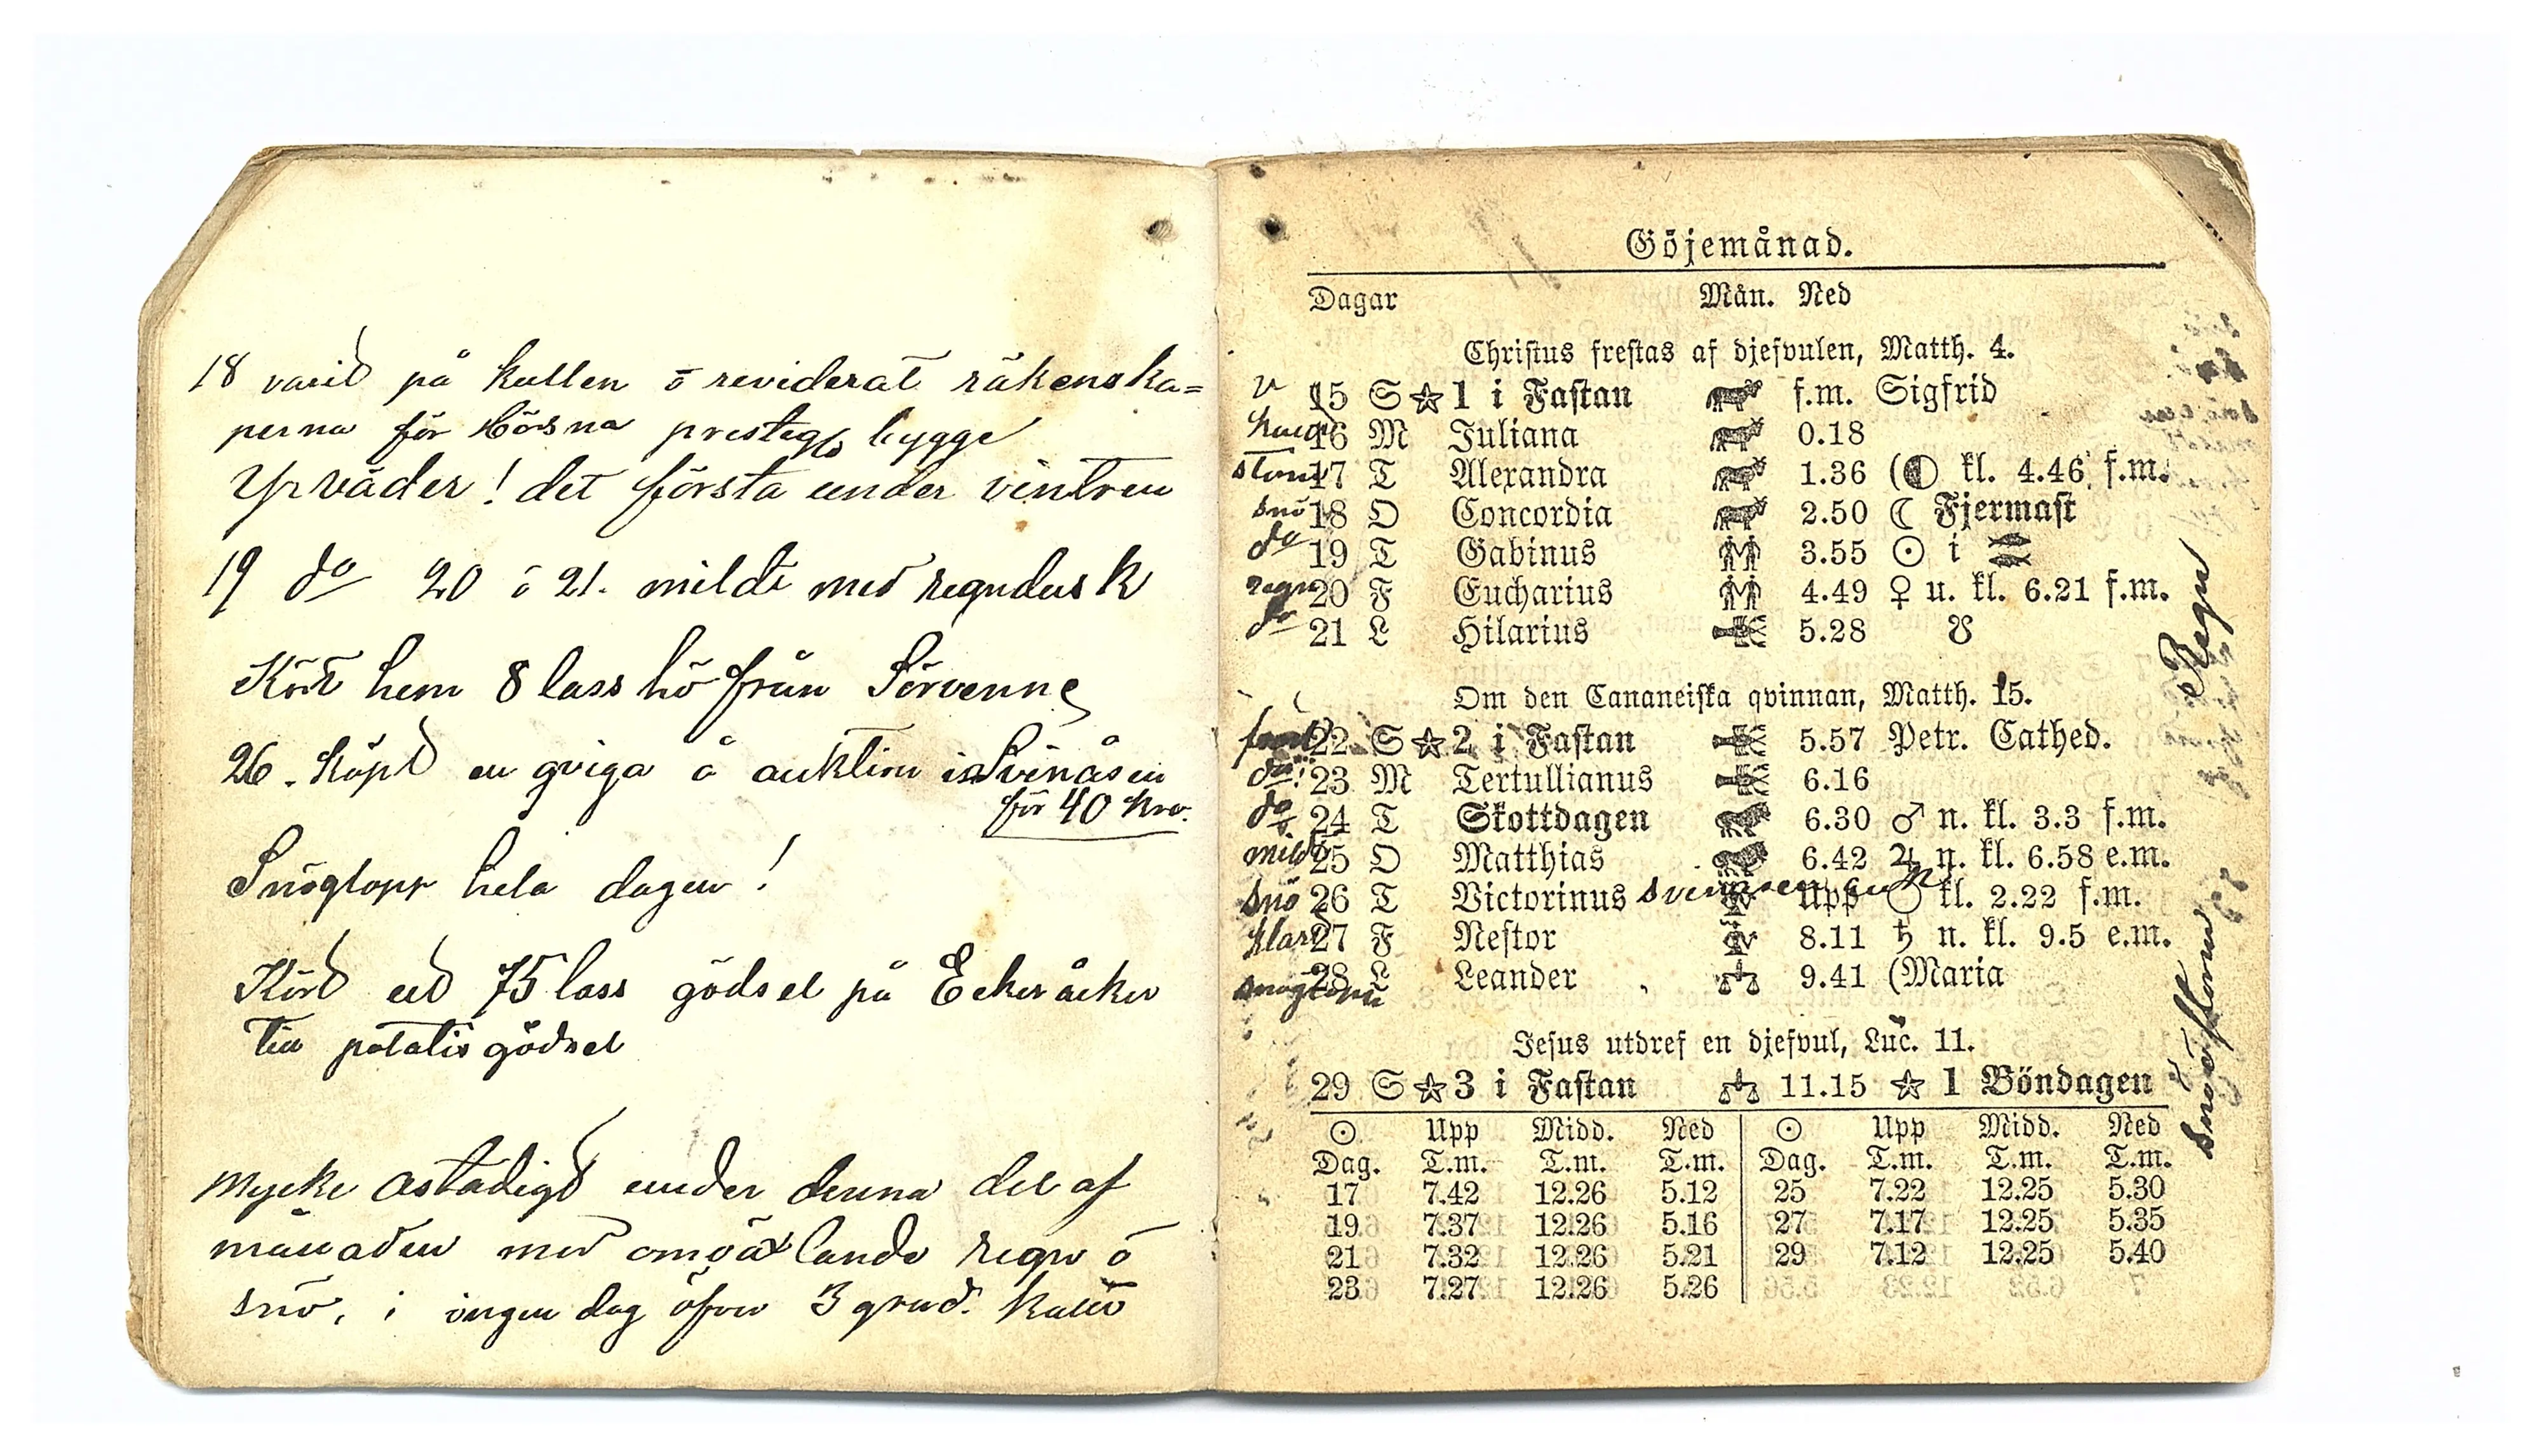 18 varit på kullen ö reviderat räkenska=
perna för Hörsna prestegs bygge
Yrväder! det första under vintren
19 do 20 ö 21. mildt med regndusk
Kört hem 8 lass hö från Sörvenne
26. Köpt en qviga å auktion i Svinåsen
för 40 kro.
Snöglopp hela dagen!
Kört ut 75 lass gödsel på Ekeråker
till potatisgödsel
mycke ostadigt under denna del af
månaden med omväxlande regn ö
snö, i ingen dag öfver 3 grad. kallt
Göjemånad.
Dagar Mån. Ned
Christus frestas af djefvulen, Matth. 4.
15 S ☆ 1 i Fastan f.m. Sigfrid
16 M Juliana 0.18
storm 17 T Alexandra 1.36 (◐ kl. 4.46 f.m.
snö 18 O Concordia 2.50 ☾ Fjermast
do 19 T Gabinus 3.55 ☉ i ♓
regn 20 F Eucharius 4.49 ♀ u. kl. 6.21 f.m.
do 21 L Hilarius 5.28 ☋
Om den Cananeiska qvinnan, Matth. 15.
22 S ☆ 2 i Fastan 5.57 Petr. Cathed.
do 23 M Tertullianus 6.16
do 24 T Skottdagen 6.30 ♂ n. kl. 3.3 f.m.
mildt 25 O Matthias 6.42 ♃ n. kl. 6.58 e.m.
snö 26 T Victorinus Upp ○ kl. 2.22 f.m.
klart 27 F Nestor 8.11 ♄ n. kl. 9.5 e.m.
snöglopp 28 L Leander 9.41 (Maria
Jesus utdref en djefvul, Luc. 11.
29 S ☆ 3 i Fastan 11.15 ☆ 1 Böndagen
☉ Upp Midd. Ned ☉ Upp Midd. Ned
Dag. T.m. T.m. T.m. Dag. T.m. T.m. T.m.
17 7.42 12.26 5.12 25 7.22 12.25 5.30
19 7.37 12.26 5.16 27 7.17 12.25 5.35
21 7.32 12.26 5.21 29 7.12 12.25 5.40
23 7.27 12.26 5.26
Regn
snö ö storm